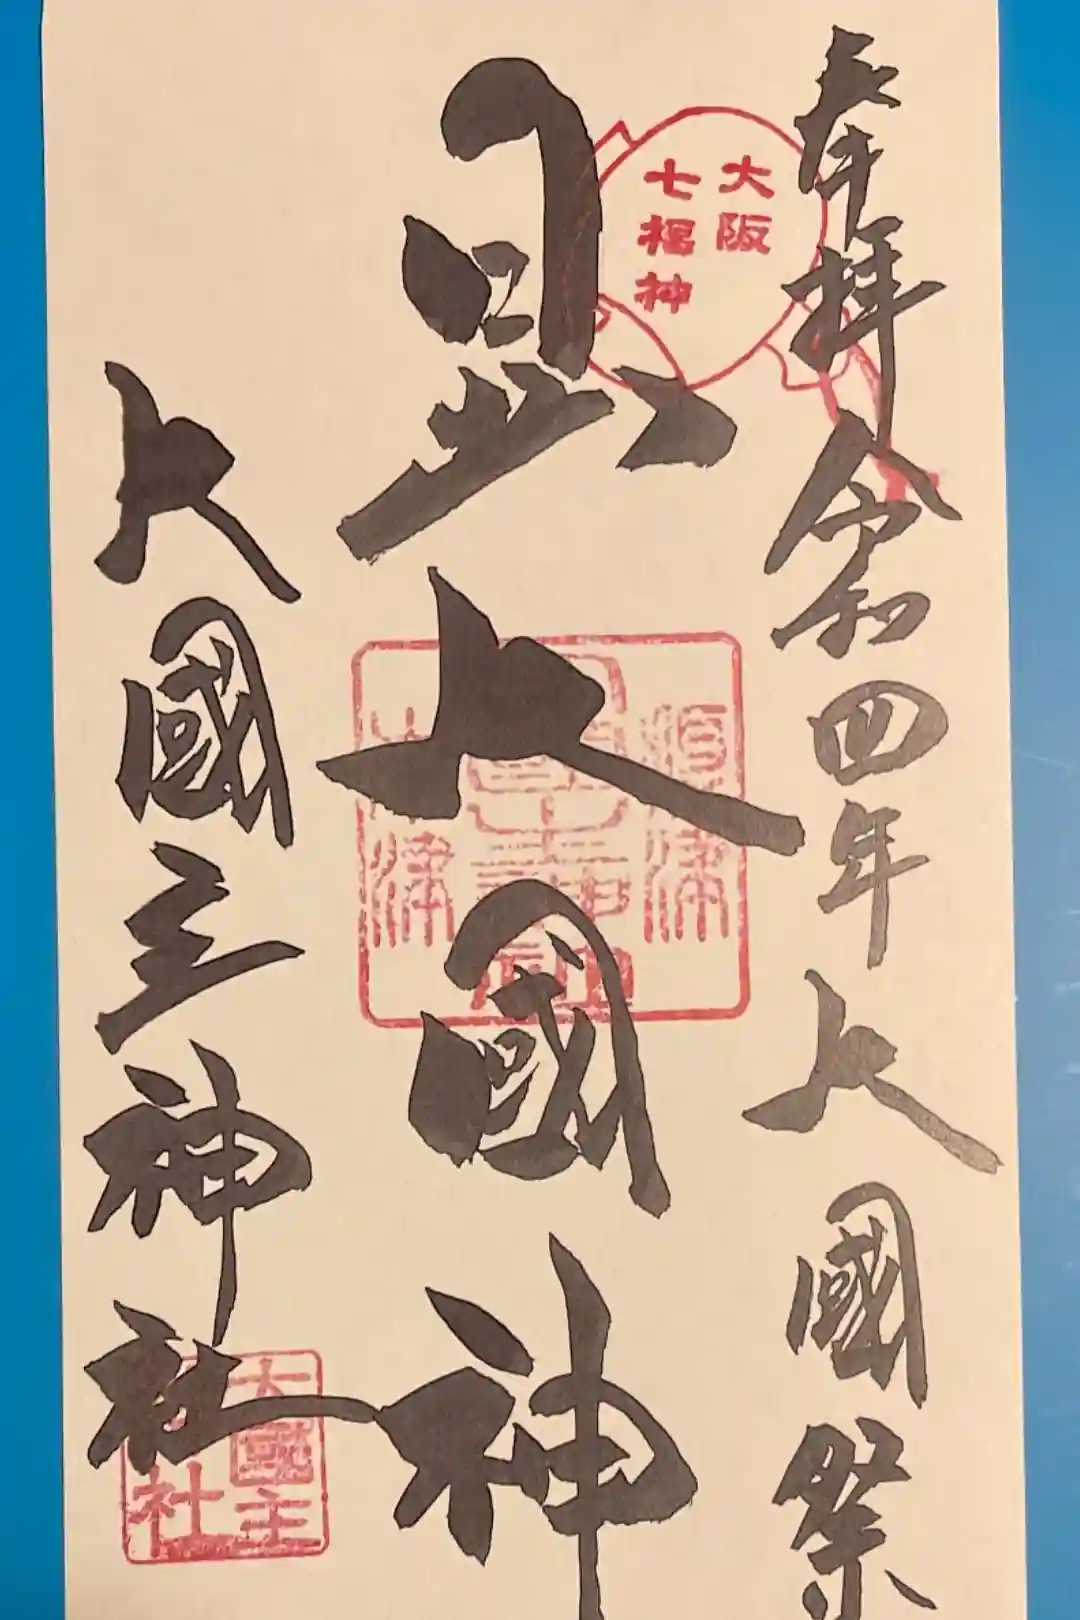 奉拝 令和四年大國祭
大阪
七福神
日出大國神
大國主神社
大國主
社